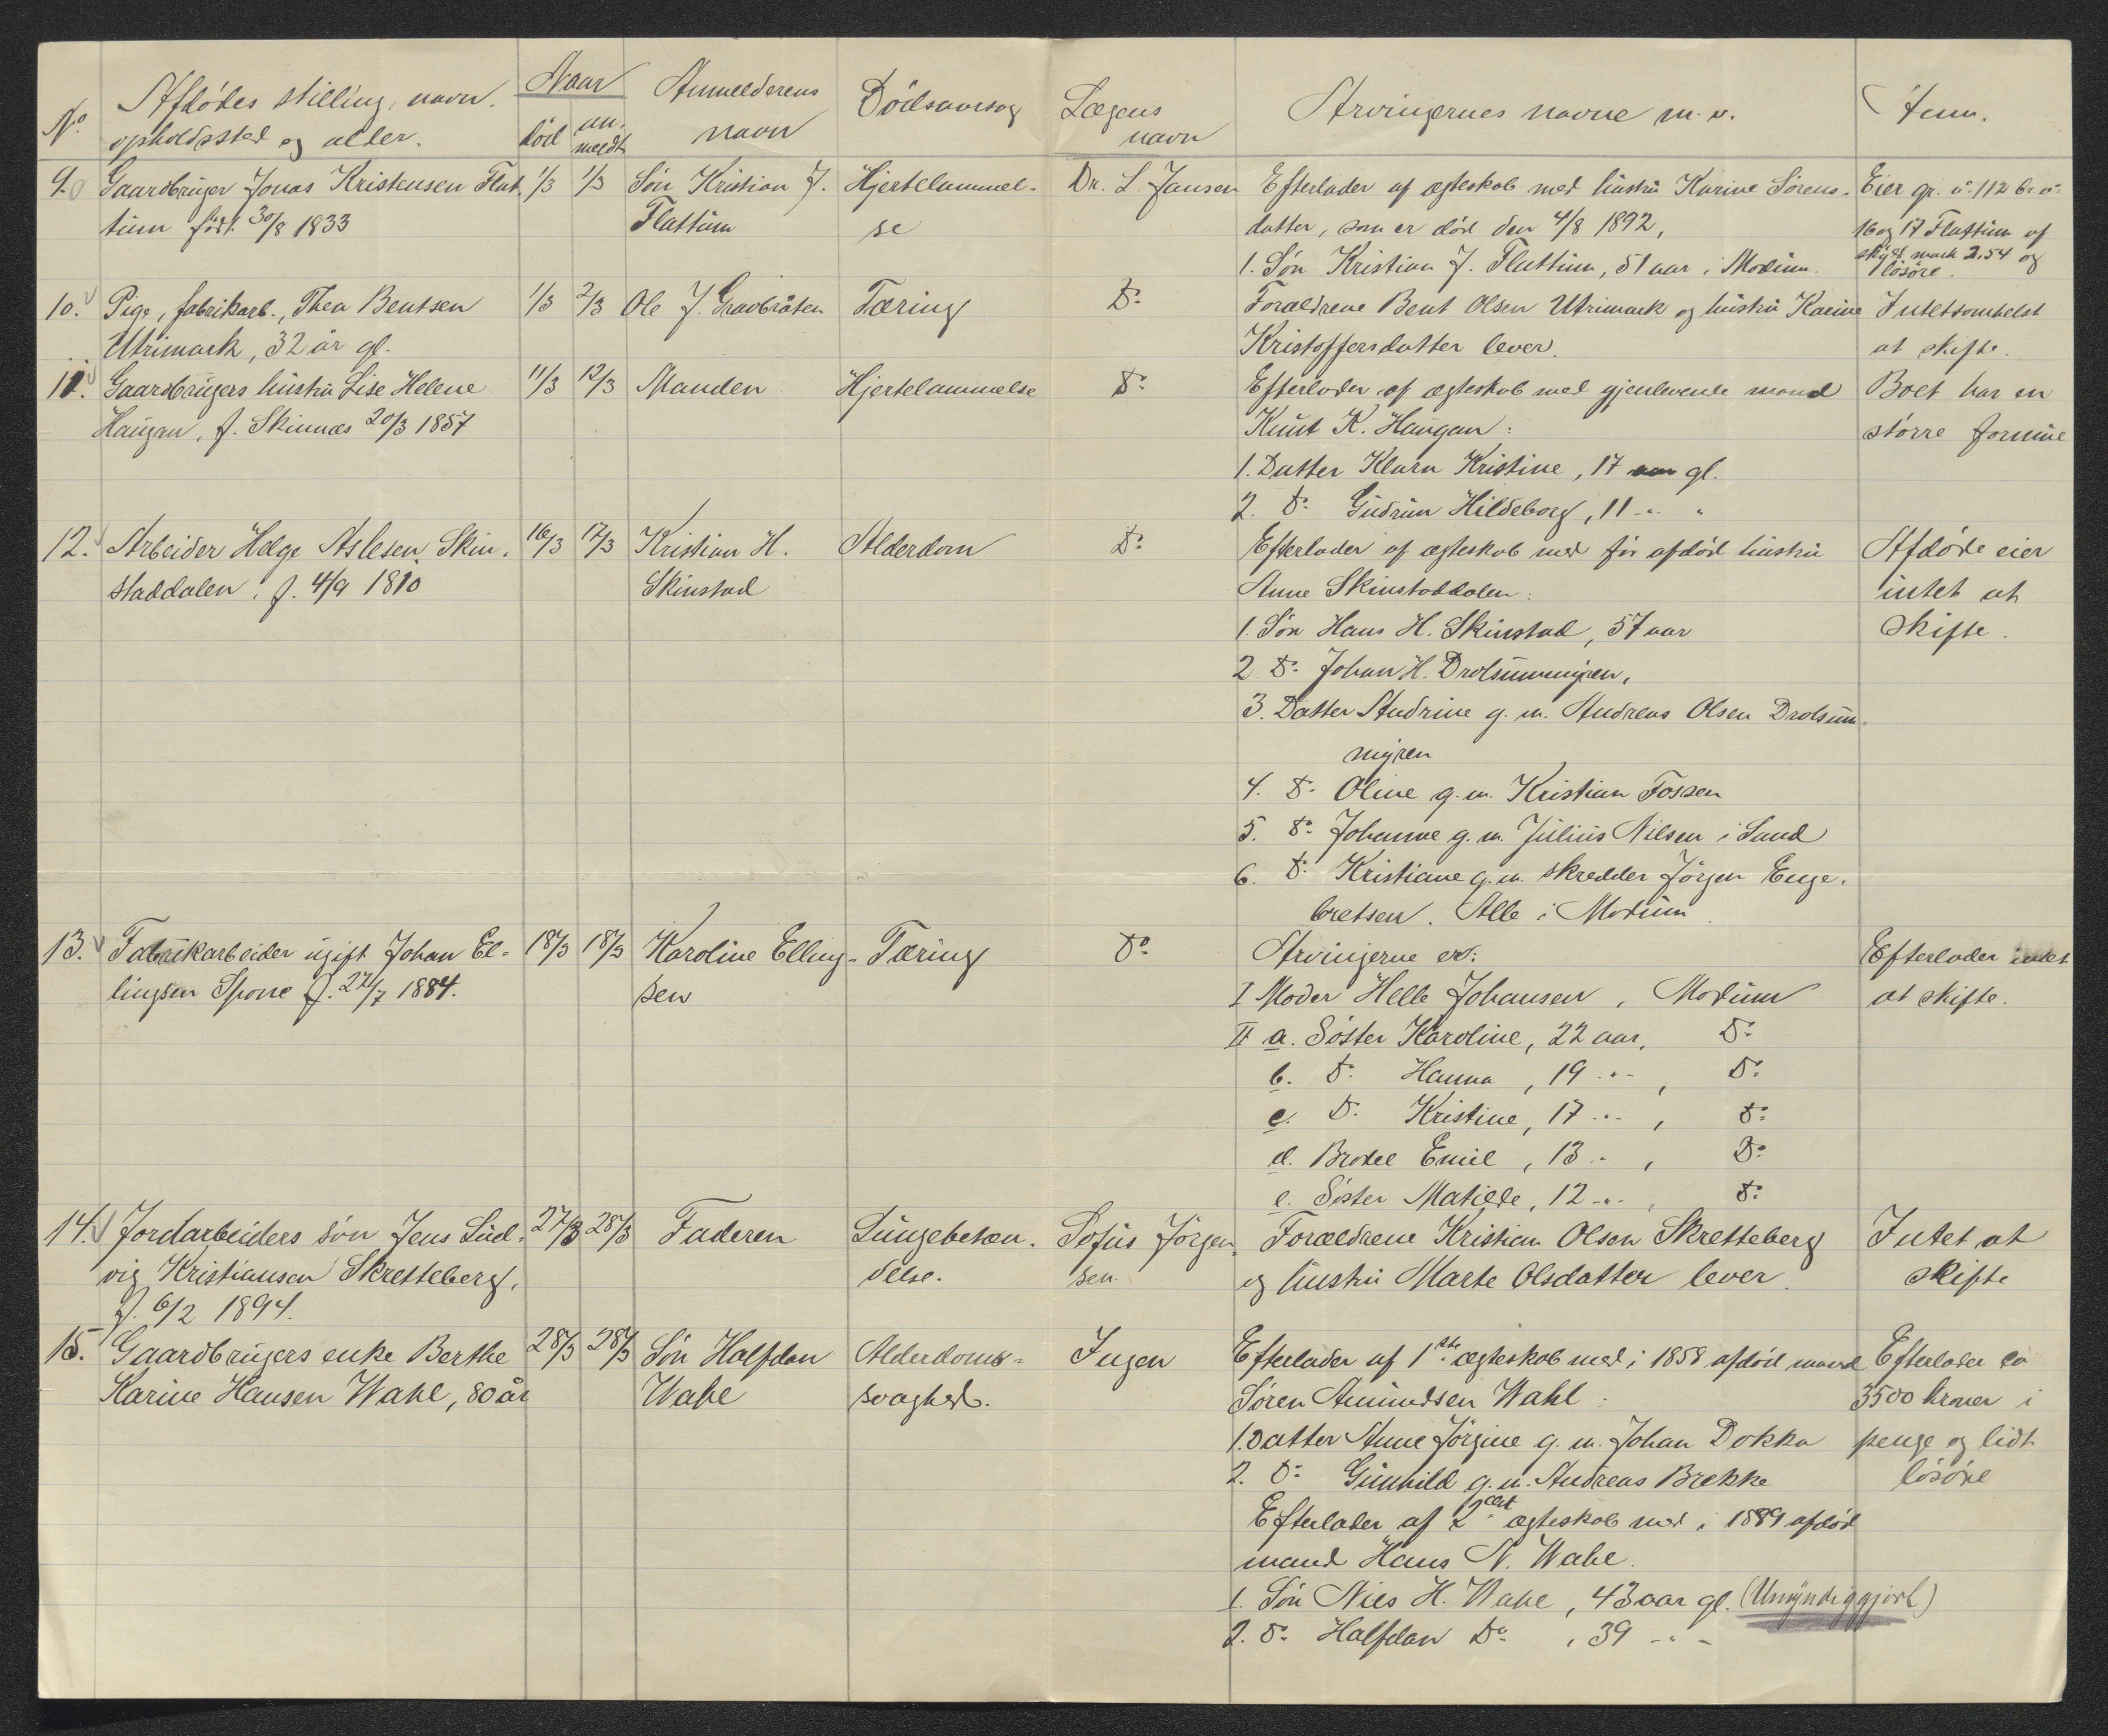 No
Afdødes stilling, navn,
opholdssted og alder.
Naar
død
an-
meldt
Anmelderens
navn
Dödsaarsag
Lægens
navn
Arvingernes navne m. v.
Anm.
9. Gaardbruger Jonas Kristensen Flat-
tum født 30/8 1833
1/3 1/3
Søn Kristian J.
Flattum
Hjertelammel-
se
Dr. L. Jansen
Efterlader af ægteskab med hustru Karine Sørens-
datter, som er død den 4/8 1892,
1. Søn Kristian J. Flattum, 51 aar i Modum.
Eier gr. n. 112 br. n.
16 og 17 Flattum af
skyld mark 2.54 og
løsøre.
10. Pige, fabrikarb., Thea Bentsen
Utrimark, 32 år gl.
1/3 2/3
Ole J. Gravbråten
Tæring
Do
Forældrene Bent Olsen Utrimark og hustru Karine
Kristoffersdatter lever.
Intetsomhelst
at skifte.
11. Gaardbrugers hustru Lise Helene
Haugan, f. Skinnes 20/3 1857
11/3 12/3
Manden
Hjertelammelse
Do
Efterlader af ægteskab med gjenlevende mand
Knut K. Haugan:
1. Datter Klara Kristine, 17 aar gl.
2. Do Gudrun Hildeborg, 11 -"- "
Boet har en
større formue
12. Arbeider Helge Aslesen Skin-
staddalen, f. 4/9 1810
16/3 17/3
Kristian H.
Skinstad
Alderdom
Do
Efterlader af ægteskab med før afdød hustru
Anne Skinstaddalen:
1. Søn Hans H. Skinstad, 57 aar
2. Do Johan H. Drolsummyren,
3. Datter Andrine g. m. Andreas Olsen Drolsum-
myren
4. Do Oline g. m. Kristian Fossen
5. Do Johanne g. m. Julius Nilsen i Land
6. Do Kristiane g. m. skredder Jörgen Enge-
bretsen. Alle i Modum.
Afdøde eier
intet at
skifte.
13. Fabrikarbeider ugift Johan El-
lingsen Spone f. 27/7 1884.
18/3 18/3
Karoline Elling-
sen
Tæring
Do
Arvingerne er:
I Moder Helle Johansen, Modum
II a. Søster Karoline, 22 aar, Do
b. Do Hanna, 19 -"-, Do
c. Do Kristine, 17 -"-, Do
d. Broder Emil, 13 -"-, Do
e. Søster Matilde, 12 -"-, Do
Efterlader intet
at skifte.
14. Jordarbeiders søn Jens Lud-
vig Kristiansen Skretteberg,
f. 6/2 1894.
27/3 28/3
Faderen
Lungebetæn-
delse.
Sofus Jörgen-
sen
Forældrene Kristian Olsen Skretteberg
og hustru Marte Olsdatter lever.
Intet at
skifte
15. Gaardbrugers enke Berthe
Karine Hansen Wahl, 80 år
28/3 28/3
Søn Halfdan
Wahl
Alderdoms-
svaghed.
Ingen
Efterlader af 1ste ægteskab med i 1858 afdød mand
Søren Amundsen Wahl:
1. Datter Anne Jørgine g. m. Johan Dokka
2. Do Gunhild g. m. Andreas Brekke
Efterlader af 2det ægteskab med i 1889 afdød
mand Hans N. Wahl.
1. Søn Niels H. Wahl, 43 aar gl. (Umyndiggjort)
2. Do Halfdan Do, 39 -"-
Efterlader ca
3500 kroner i
penge og lidt
løsøre